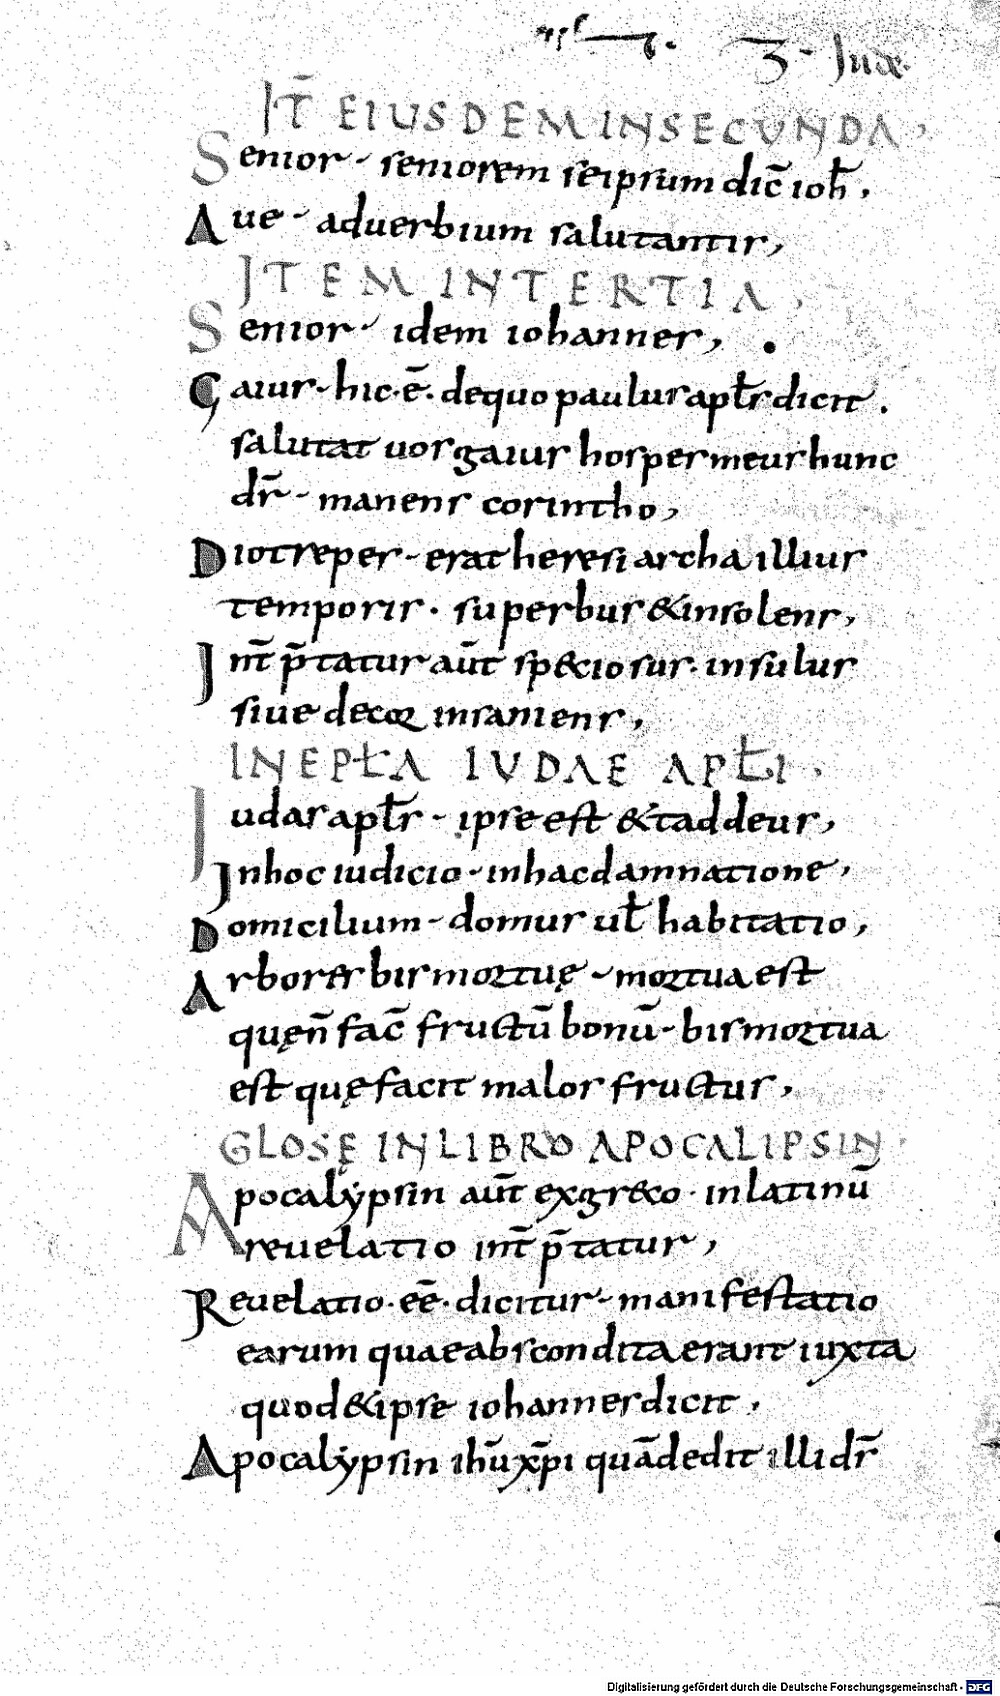 3 - Jude.
IT̄ EIUSDEM IN SECUNDA,
Senior - seniorem seipsum dic̄ ioh̄,
Aue - aduerbium salutantis,
ITEM IN TERTIA,
Senior - idem iohannes,
Gaius - hic·ē· de quo paulus apl̄s dicit.
salutat uos gaius hospes meus hunc
dr̄ - manens corintho,
Diotrepes - erat heresi archa illius
temporis. superbus & insolens,
Int̄ p̄tatur aūt sp&ciosus. insulus
siue decor insaniens,
IN EPL̄A IUDAE APL̄I,
Iudas apl̄s - ipse est & taddeus,
In hoc iudicio - in hac damnatione,
Domicilium - domus ul̄ habitatio,
Arbores bis mortuę - mortua est
quę n̄ fac̄ fructū bonū - bis mortua
est quę facit malos fructus,
GLOSĘ IN LIBRO APOCALIPSIN,
Apocalypsin aūt ex gr&co · in latinū
reuelatio int̄ p̄tatur,
Reuelatio · eē · dicitur - manifestatio
earum quae abscondita erant iuxta
quod & ipse iohannes dicit,
Apocalypsin ih̄u xp̄i quā dedit illi ds̄
Digitalisierung gefördert durch die Deutsche Forschungsgemeinschaft - DFG